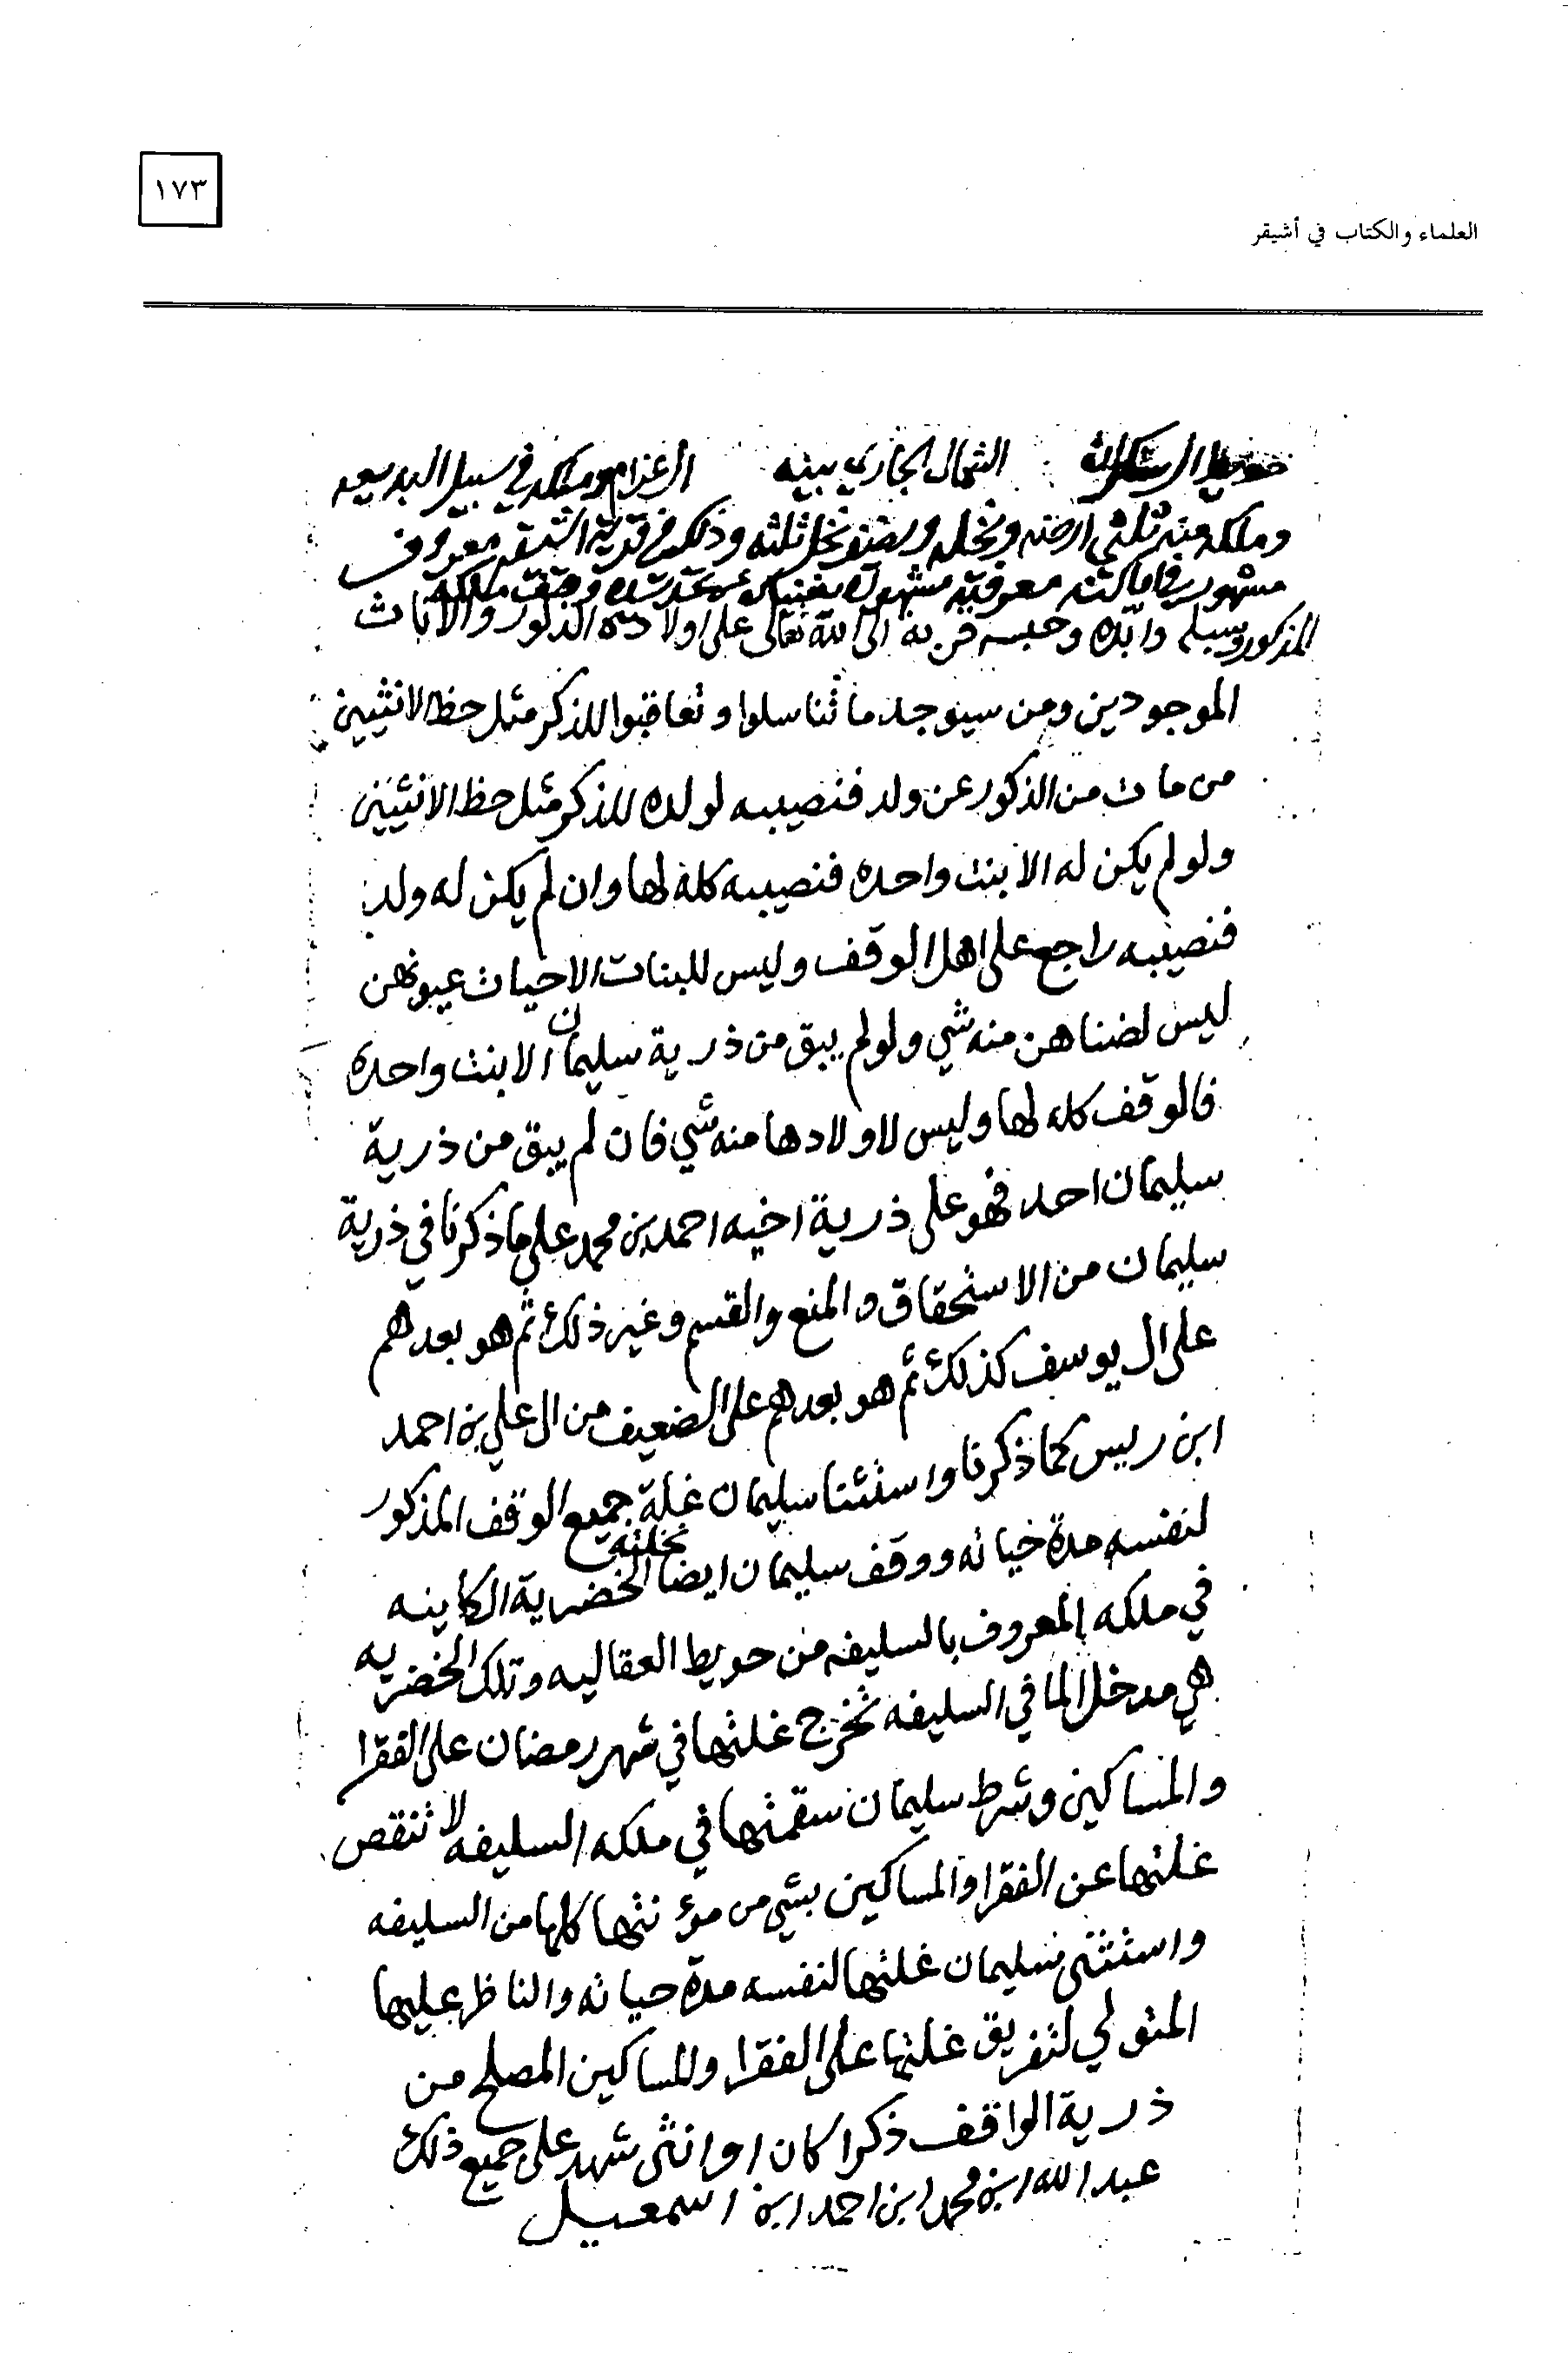 ١٧٣
العلماء والكتاب في أشيقر
الشمال الجاري بينه في سبيل
وملكه منه ثلثي ارضه ونخله ثلثه وذلك في قرية معروف
مشهور معرفته
المذكور وسبله وابده وحبسه قربة الى الله تعالى على اولاده الذكور والاناث
الموجودين ومن سيوجد ما تناسلوا وتعاقبوا للذكر مثل حظ الانثيين
من مات من الذكور عن ولد فنصيبه لولده للذكر مثل حظ الانثيين
ولو لم يكن له الا بنت واحده فنصيبه كله لها وان لم يكن له ولد
فنصيبه راجع على اهل الوقف وليس للبنات الا حياث عيونهن
ليس لضناهن منه شي ولو لم يبق من ذرية سليمان الا بنت واحده
فالوقف كله لها وليس لاولادها منه شي فان لم يبق من ذرية
سليمان احد فهو على ذرية اخيه احمد بن محمد على ما ذكرنا في ذرية
سليمان من الاستحقاق والمنع والقسم وغير ذلك ثم هو بعدهم
على ال يوسف كذلك ثم هو بعدهم على الضعيف من ال علي بن احمد
ابن ريس كما ذكرنا واستثنا سليمان غلة جميع الوقف المذكور
لنفسه مدة حياته ووقف سليمان ايضا نخلته الخضرية الكاينه
في ملكه المعروف بالسليفه من حويط العقاليه وتلك الخضريه
هي مدخل الما في السليفه تخرج غلتها في شهر رمضان على الفقرا
والمساكين وشرط سليمان سقمتها في ملكه السليفه لا تنقص
غلتها عن الفقرا والمساكين بشي من مؤنتها كلها من السليفه
واستثنى سليمان غلتها لنفسه مدة حياته والناظر عليها
المتولي لتفريق غلتها على الفقرا والمساكين المصلح من
ذرية الواقف ذكرا كان او انثى شهد على جميع ذلك
عبد الله ابن محمد ابن احمد ابن اسمعيل